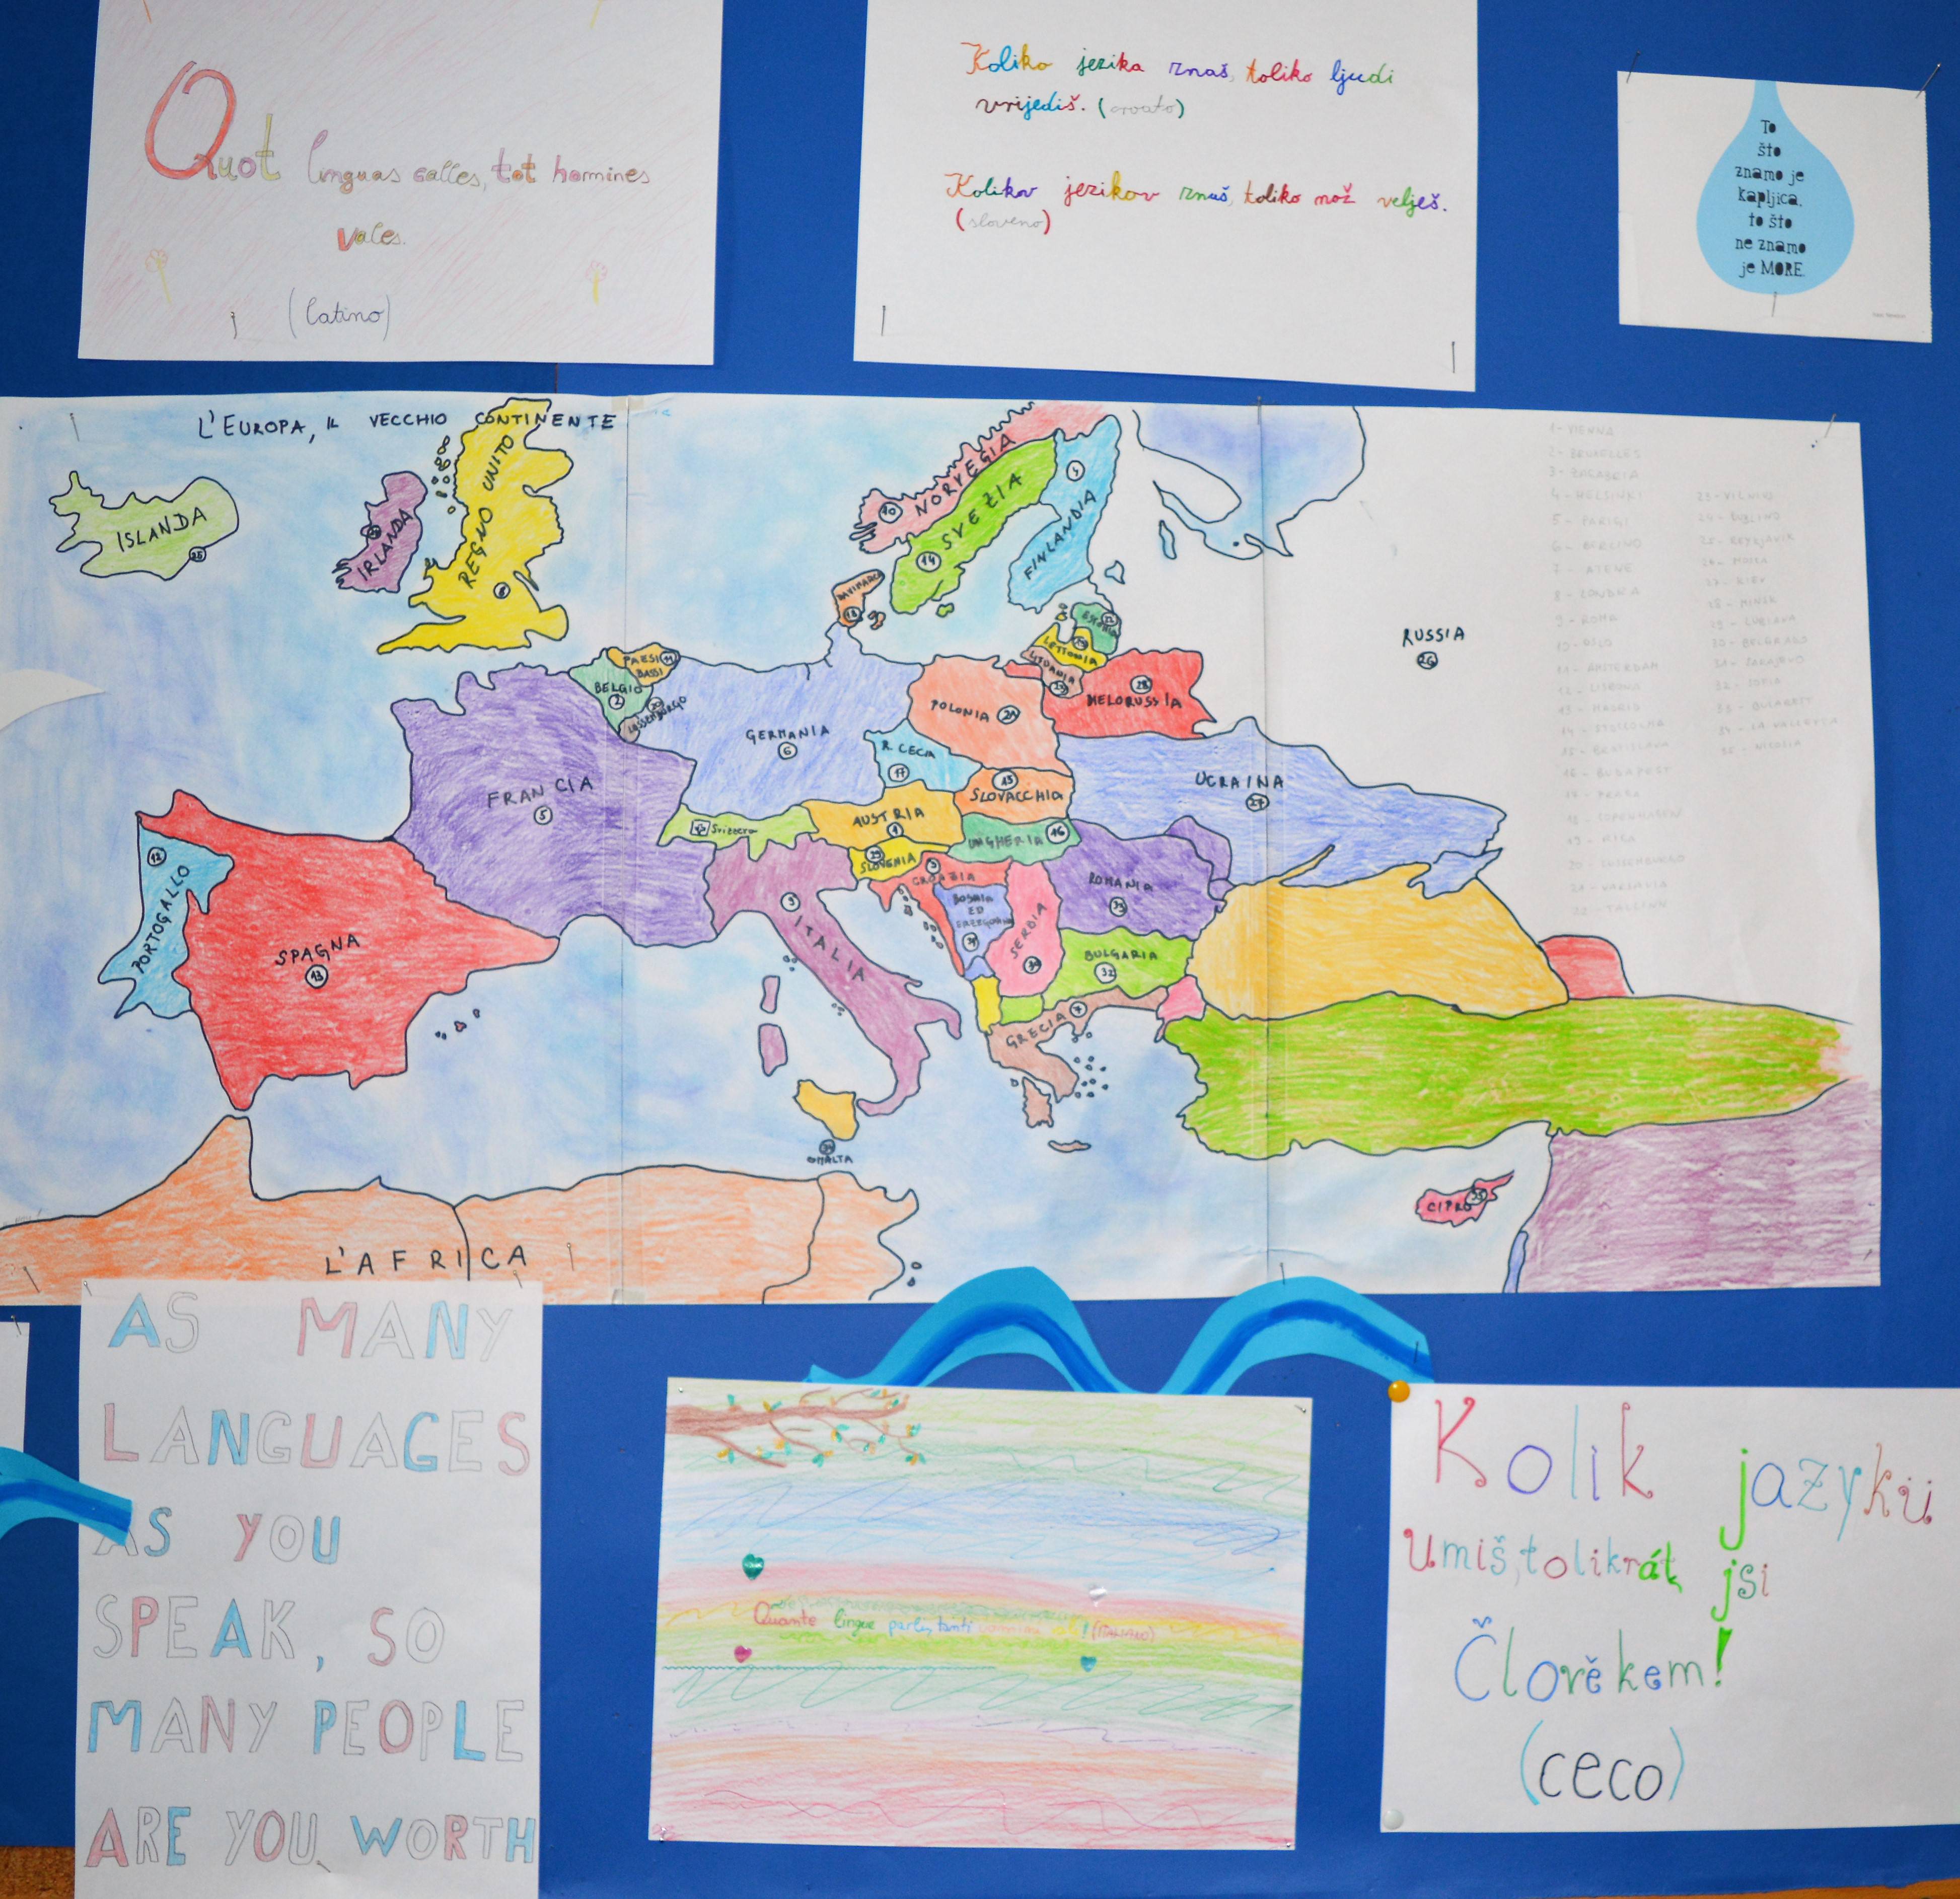 Quot linguas calles, tot homines
vales.
(latino)
Koliko jezika znaš, toliko ljudi
vrijediš. (croato)
Kolikov jezikov znaš, toliko mož velješ.
(sloveno)
To
što
znamo je
kapljica,
to što
ne znamo
je MORE.
L'EUROPA, IL VECCHIO CONTINENTE
ISLANDA
25
IRLANDA
REGNO UNITO
8
NORVEGIA
10
SVEZIA
14
FINLANDIA
DANIMARCA
18
ESTONIA
LETTONIA
LITUANIA
BIELORUSSIA
28
RUSSIA
26
PAESI
BASSI
11
BELGIO
2
LUSSEMBURGO
20
GERMANIA
6
POLONIA
21
R. CECIA
17
15
SLOVACCHIA
UCRAINA
27
FRANCIA
5
Svizzera
AUSTRIA
1
UNGHERIA
16
29
SLOVENIA
3
CROAZIA
BOSNIA
ED
ERZEGOVINA
31
SERBIA
30
ROMANIA
33
BULGARIA
32
PORTOGALLO
12
SPAGNA
13
ITALIA
9
GRECIA
7
34
MALTA
CIPRO
35
L'AFRICA
1 - VIENNA
2 - BRUXELLES
3 - ZAGABRIA
4 - HELSINKI
5 - PARIGI
6 - BERLINO
7 - ATENE
8 - LONDRA
9 - ROMA
10 - OSLO
11 - AMSTERDAM
12 - LISBONA
13 - MADRID
14 - STOCCOLMA
15 - BRATISLAVA
16 - BUDAPEST
17 - PRAGA
18 - COPENHAGEN
19 - RIGA
20 - LUSSEMBURGO
21 - VARSAVIA
22 - TALLINN
23 - VILNIUS
24 - DUBLINO
25 - REYKJAVIK
26 - MOSCA
27 - KIEV
28 - MINSK
29 - LUBIANA
30 - BELGRADO
31 - SARAJEVO
32 - SOFIA
33 - BUCAREST
34 - LA VALLETTA
35 - NICOSIA
AS MANY
LANGUAGES
AS YOU
SPEAK, SO
MANY PEOPLE
ARE YOU WORTH
Quante lingue parli, tanti uomini vali! (ITALIANO)
Kolik jazyků
umíš, tolikrát jsi
Člověkem!
(ceco)